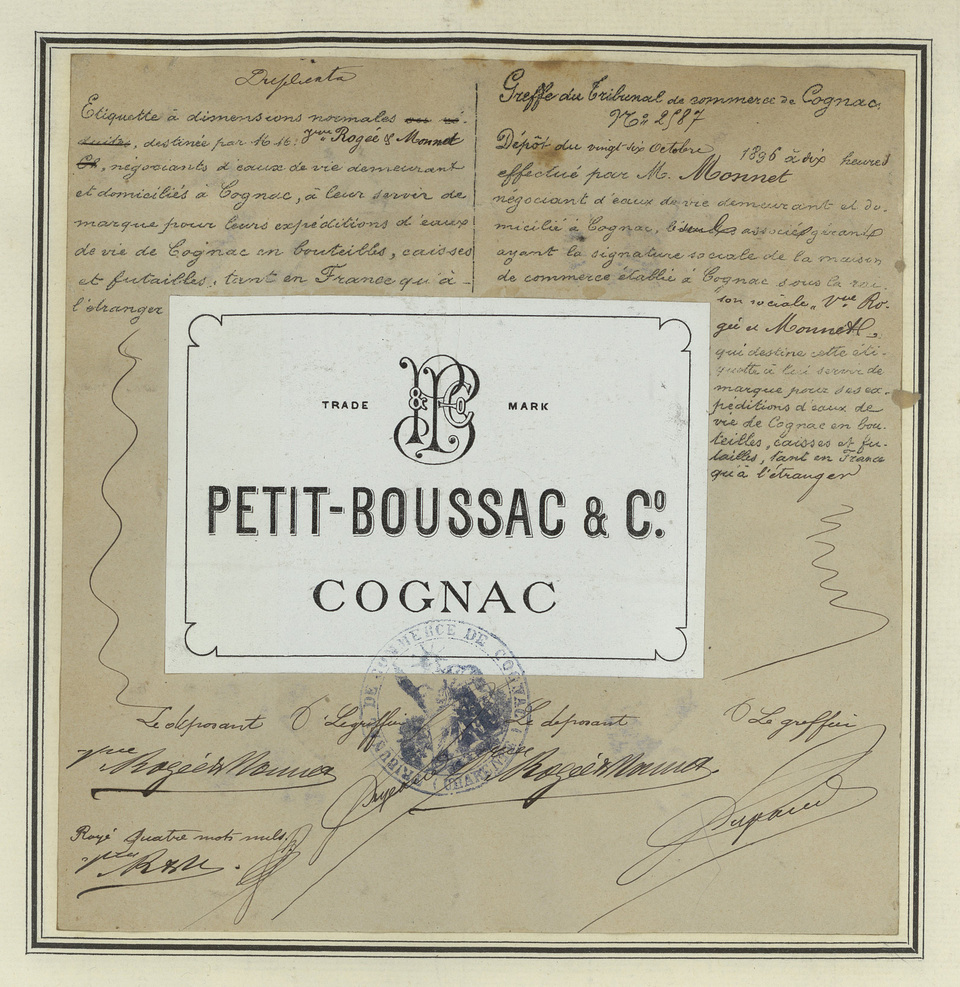 Duplicata
Etiquette à dimensions normales
destinée par MM: Vve Rogée & Monnet
négociants d'eaux de vie demeurant
et domiciliés à Cognac, à leur servir de
marque pour leurs expéditions d'eaux
de vie de Cognac en bouteilles, caisses
et futailles, tant en France qu'à
l'étranger
Greffe du Tribunal de commerce de Cognac.
No 2587
Dépôt du vingt-six Octobre 1896 à dix heures
effectué par M. Monnet
négociant d'eaux de vie demeurant et do-
micilié à Cognac, le seul associé gérant
ayant la signature sociale de la maison
de commerce établie à Cognac sous la rai-
son sociale „ Vve Ro-
gée & Monnet
qui destine cette éti-
quette à lui servir de
marque pour ses ex-
péditions d'eaux de
vie de Cognac en bou-
teilles, caisses et fu-
tailles, tant en France
qu'à l'étranger
TRADE MARK
PETIT-BOUSSAC & Co.
COGNAC
TRIBUNAL DE COMMERCE DE COGNAC
Le déposant Le greffier Le déposant Le greffier
Vve Rogée & Monnet Vve Rogée & Monnet
Rayé quatre mots nuls.
Vve R & M